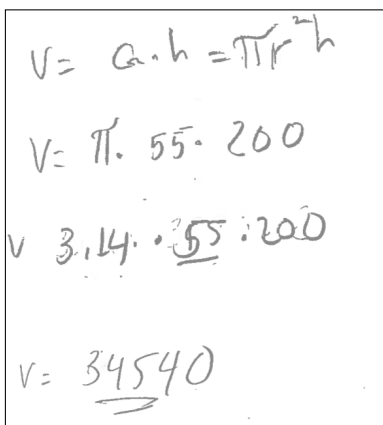 V = G.h = πr²h
V = π. 55. 200
V 3.14. . 55 . 200
V = 34540